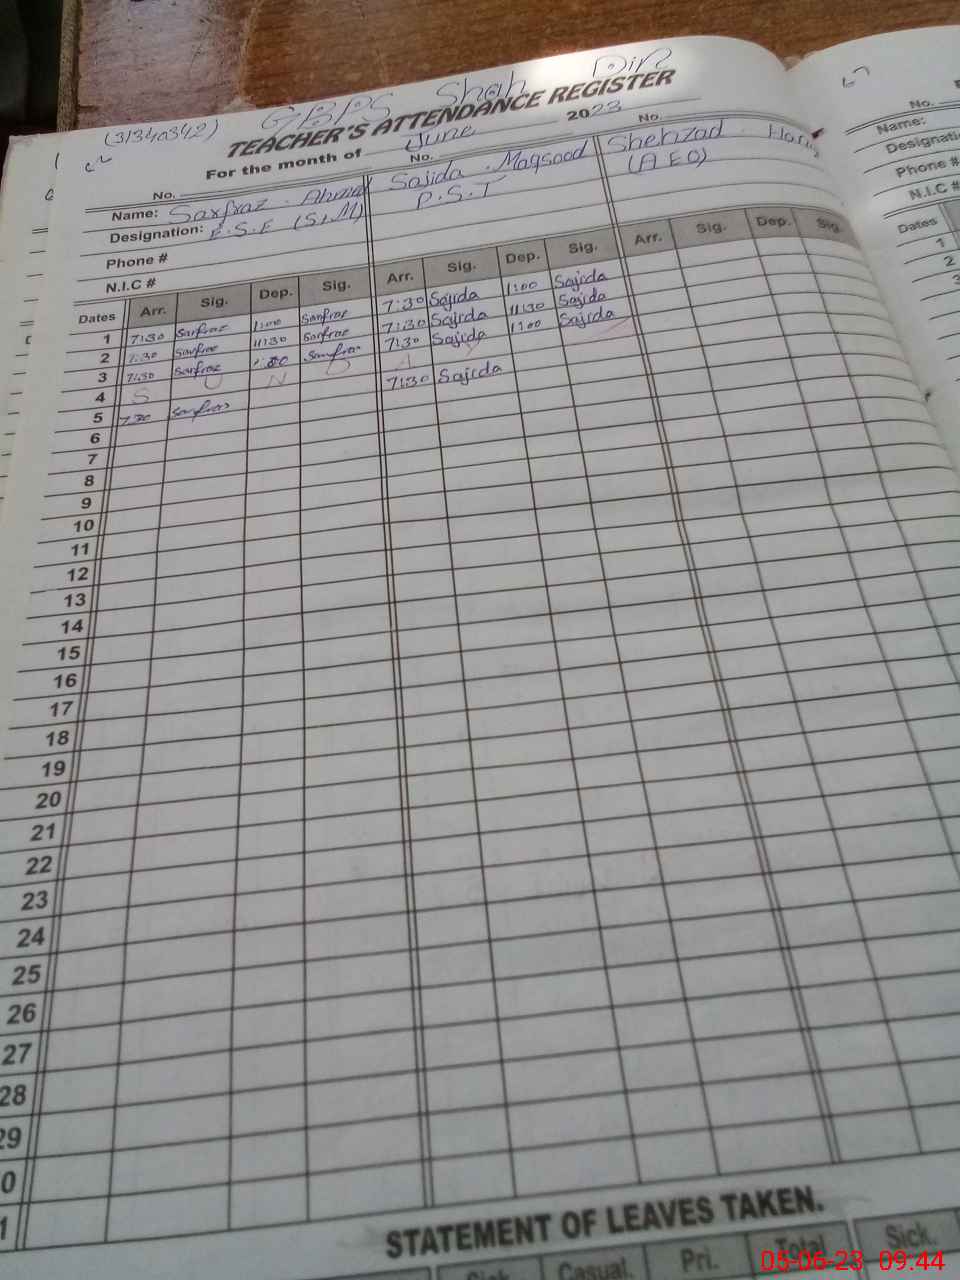 (31340342) GBPS Shah Din
TEACHER'S ATTENDANCE REGISTER
For the month of June 2023
No. No. No.
Name: Sarfraz . Ahmad Sajida . Maqsood Shehzad . Haris
Designation: E.S.E (S.M) P.S.T (AEO)
Phone #
N.I.C #
Dates Arr. Sig. Dep. Sig. Arr. Sig. Dep. Sig. Arr. Sig. Dep. Sig.
1 7:30 Sarfraz 1:00 Sarfraz 7:30 Sajida 1:00 Sajida
2 7:30 Sarfraz 11:30 Sarfraz 7:30 Sajida 11:30 Sajida
3 7:30 Sarfraz 1:00 Sarfraz 7:30 Sajida 1:00 Sajida
4 S U N D A Y
5 7:30 Sarfraz 7:30 Sajida
6
7
8
9
10
11
12
13
14
15
16
17
18
19
20
21
22
23
24
25
26
27
28
29
0
1
STATEMENT OF LEAVES TAKEN.
Sick. Casual. Pri. Total Sick.
No.
Name:
Designati
Phone #
N.I.C #
Dates
1
2
3
05-06-23 09:44